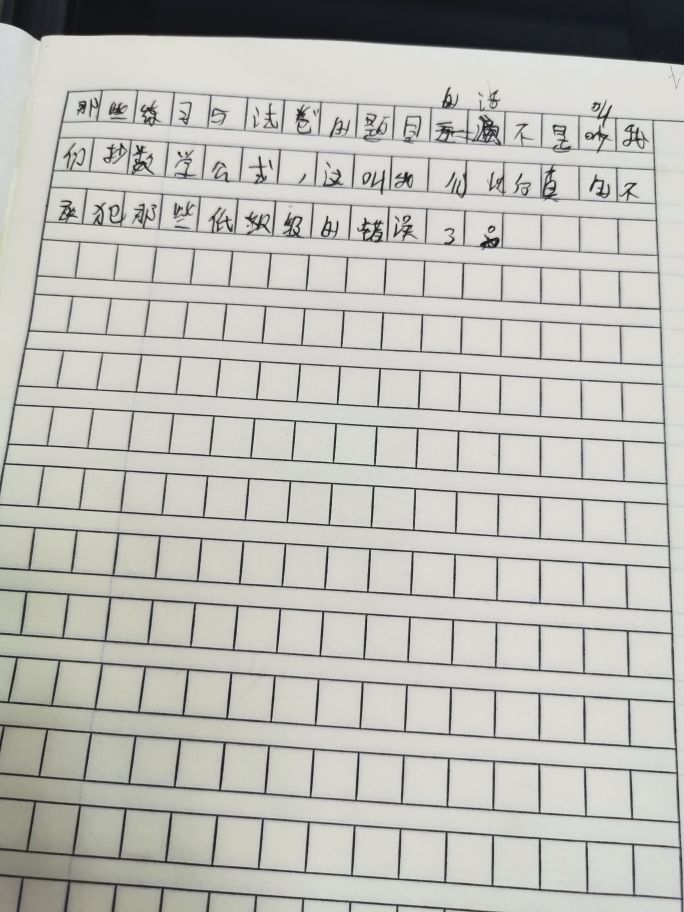 那些练习与试卷的题目的话不是叫我
们抄数学公式，这叫我们以后真的不
要犯那些低级的错误了。